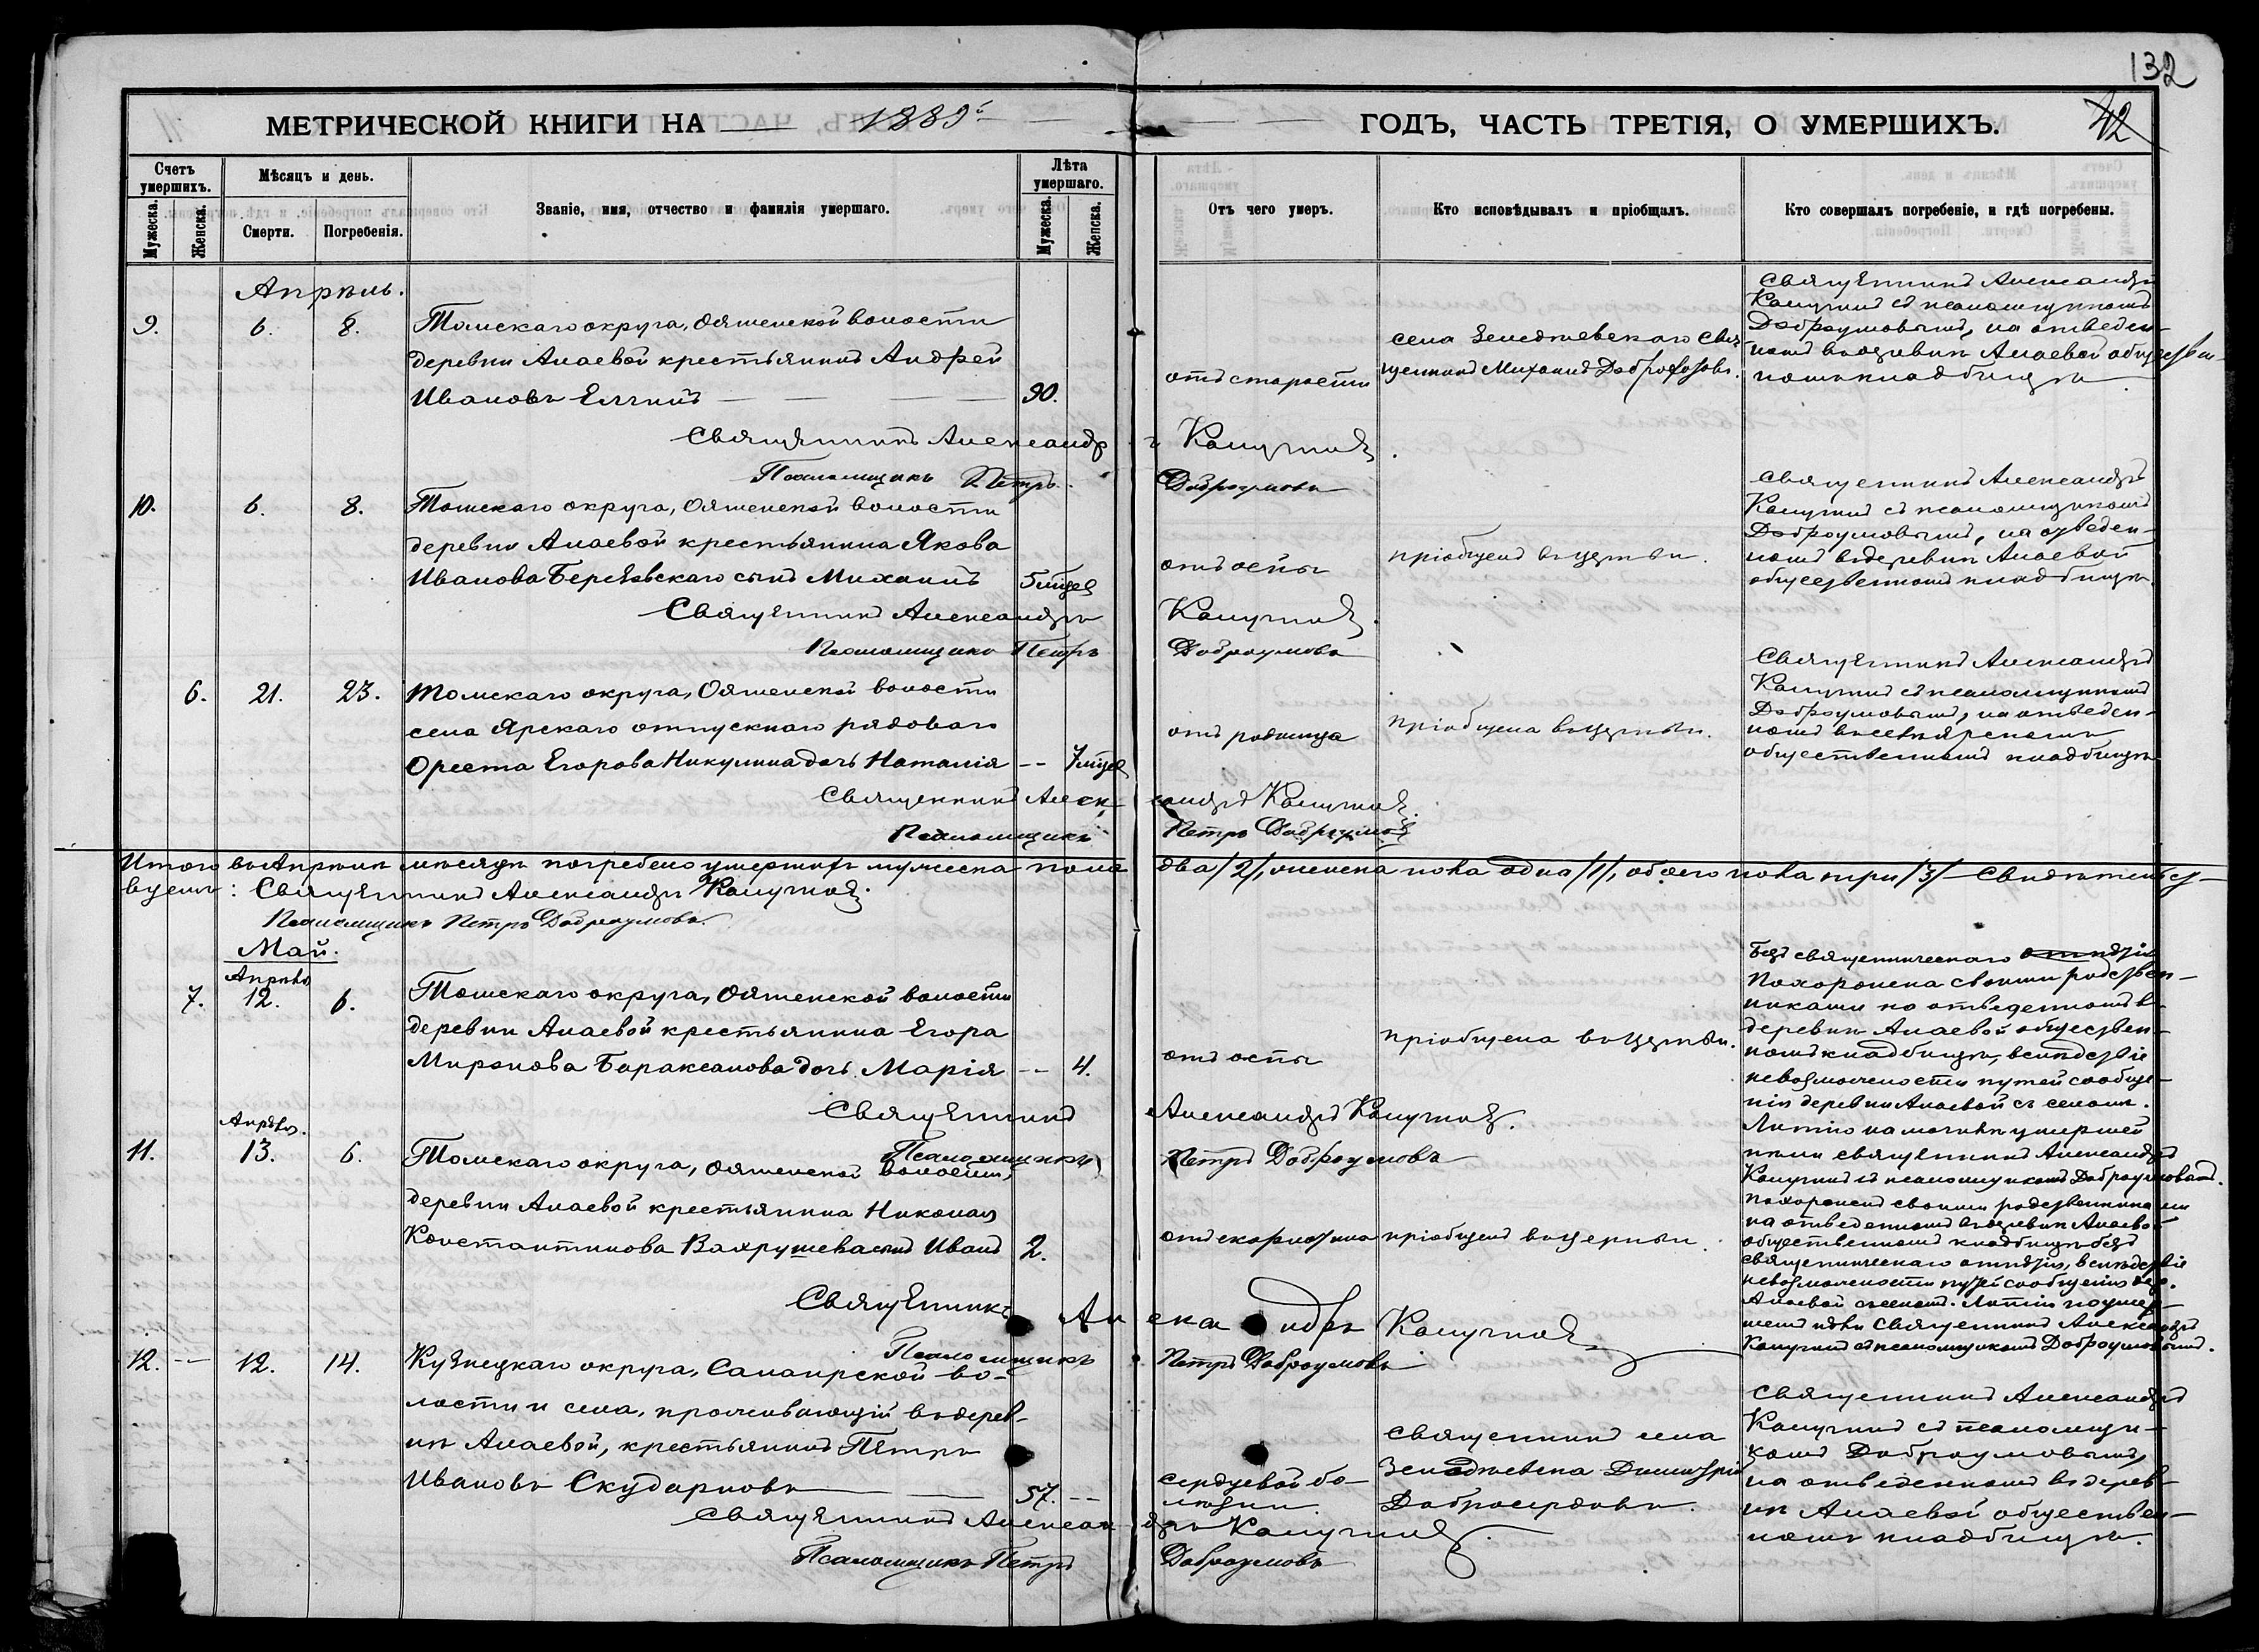 132
МЕТРИЧЕСКОЙ КНИГИ НА 1889 ГОДЪ, ЧАСТЬ ТРЕТІЯ, О УМЕРШИХЪ.
42
Счетъ умершихъ.
Мужеска.
Женска.
Мѣсяцъ и день.
Смерти.
Погребенія.
Званіе, имя, отчество и фамилія умершаго.
Лѣта умершаго.
Мужеска.
Женска.
Отъ чего умеръ.
Кто исповѣдывалъ и пріобщалъ.
Кто совершалъ погребеніе, и гдѣ погребены.
Апрѣль.
9. 6. 8.
Томскаго округа, Ояшенской волости
деревни Алаевой крестьянинъ Андрей
Ивановъ 90.
отъ старости
села
щенникъ Михаилъ
Священникъ Александръ
съ псаломщикомъ
Доброумовымъ, на отведен-
номъ въ деревнѣ Алаевой обществен-
номъ кладбищѣ.
Священникъ Александръ
Псаломщикъ Петръ Доброумовъ
10. 6. 8.
Томскаго округа, Ояшенской волости
деревни Алаевой крестьянина Якова
Иванова сынъ Михаилъ 5 мѣсц
отъ оспы
пріобщенъ въ церкви.
Священникъ Александръ
съ псаломщикомъ
Доброумовымъ, на отведен-
номъ въ деревнѣ Алаевой
общественномъ кладбищѣ.
Священникъ Александръ
Псаломщикъ Петръ Доброумовъ
6. 21. 23.
Томскаго округа, Ояшенской волости
села Ярскаго отпускнаго рядоваго
Ореста Егорова Никулина дочь Наталія -- 7 мѣсц
отъ родимца
пріобщена въ церкви.
Священникъ Александръ
съ псаломщикомъ
Доброумовымъ, на отведен-
номъ въ селѣ Ярскомъ
общественномъ кладбищѣ
Священникъ Александръ
Псаломщикъ Петръ Доброумовъ
Итого въ Апрѣлѣ мѣсяцѣ погребено умершихъ мужеска пола два /2/, женска пола одна /1/, обоего пола три /3/ Свидѣтельст-
вуемъ: Священникъ Александръ
Псаломщикъ Петръ Доброумовъ.
Май.
Апрѣля
7. 12. 6.
Томскаго округа, Ояшенской волости
деревни Алаевой крестьянина Егора
Миронова Бараксанова дочь Марія -- 4.
отъ оспы
пріобщена въ церкви.
Безъ священническаго отпѣтія
Похоронена своими родствен-
никами на отведенномъ въ
деревнѣ Алаевой обществен-
номъ кладбищѣ, вслѣдствіе
невозможности путей сообще-
нія деревни Алаевой съ селомъ.
Литію на могилѣ умершей
пѣли священникъ Александръ
съ псаломщикомъ Доброумовымъ.
Священникъ Александръ
Псаломщикъ Петръ Доброумовъ
Апрѣля.
11. 13. 6.
Томскаго округа, Ояшенской волости,
деревни Алаевой крестьянина Николая
Константинова Вахрушева сынъ Иванъ 2.
отъ скарлатина
пріобщенъ въ церкви.
Похороненъ своими родственниками
на отведенномъ въ деревнѣ Алаевой
общественномъ кладбищѣ безъ
священническаго отпѣтія, вслѣдствіе
невозможности путей сообщенія дер.
Алаевой съ селомъ. Литію по умер-
шемъ пѣли Священникъ Александръ
съ псаломщикомъ Доброумовымъ.
Священникъ Александръ
Псаломщикъ Петръ Доброумовъ
12. -- 12. 14.
Кузнецкаго округа, Салаирской во-
лости и села, проживающій въ дерев-
нѣ Алаевой, крестьянинъ Петръ
Ивановъ Скударновъ 57. --
сердцевой бо-
лѣзни.
Священникъ села
Димитрій
Добросердовъ.
Священникъ Александръ
съ псаломщи-
комъ Доброумовымъ
на отведенномъ въ дерев-
нѣ Алаевой обществен-
номъ кладбищѣ.
Священникъ Александръ
Псаломщикъ Петръ Доброумовъ